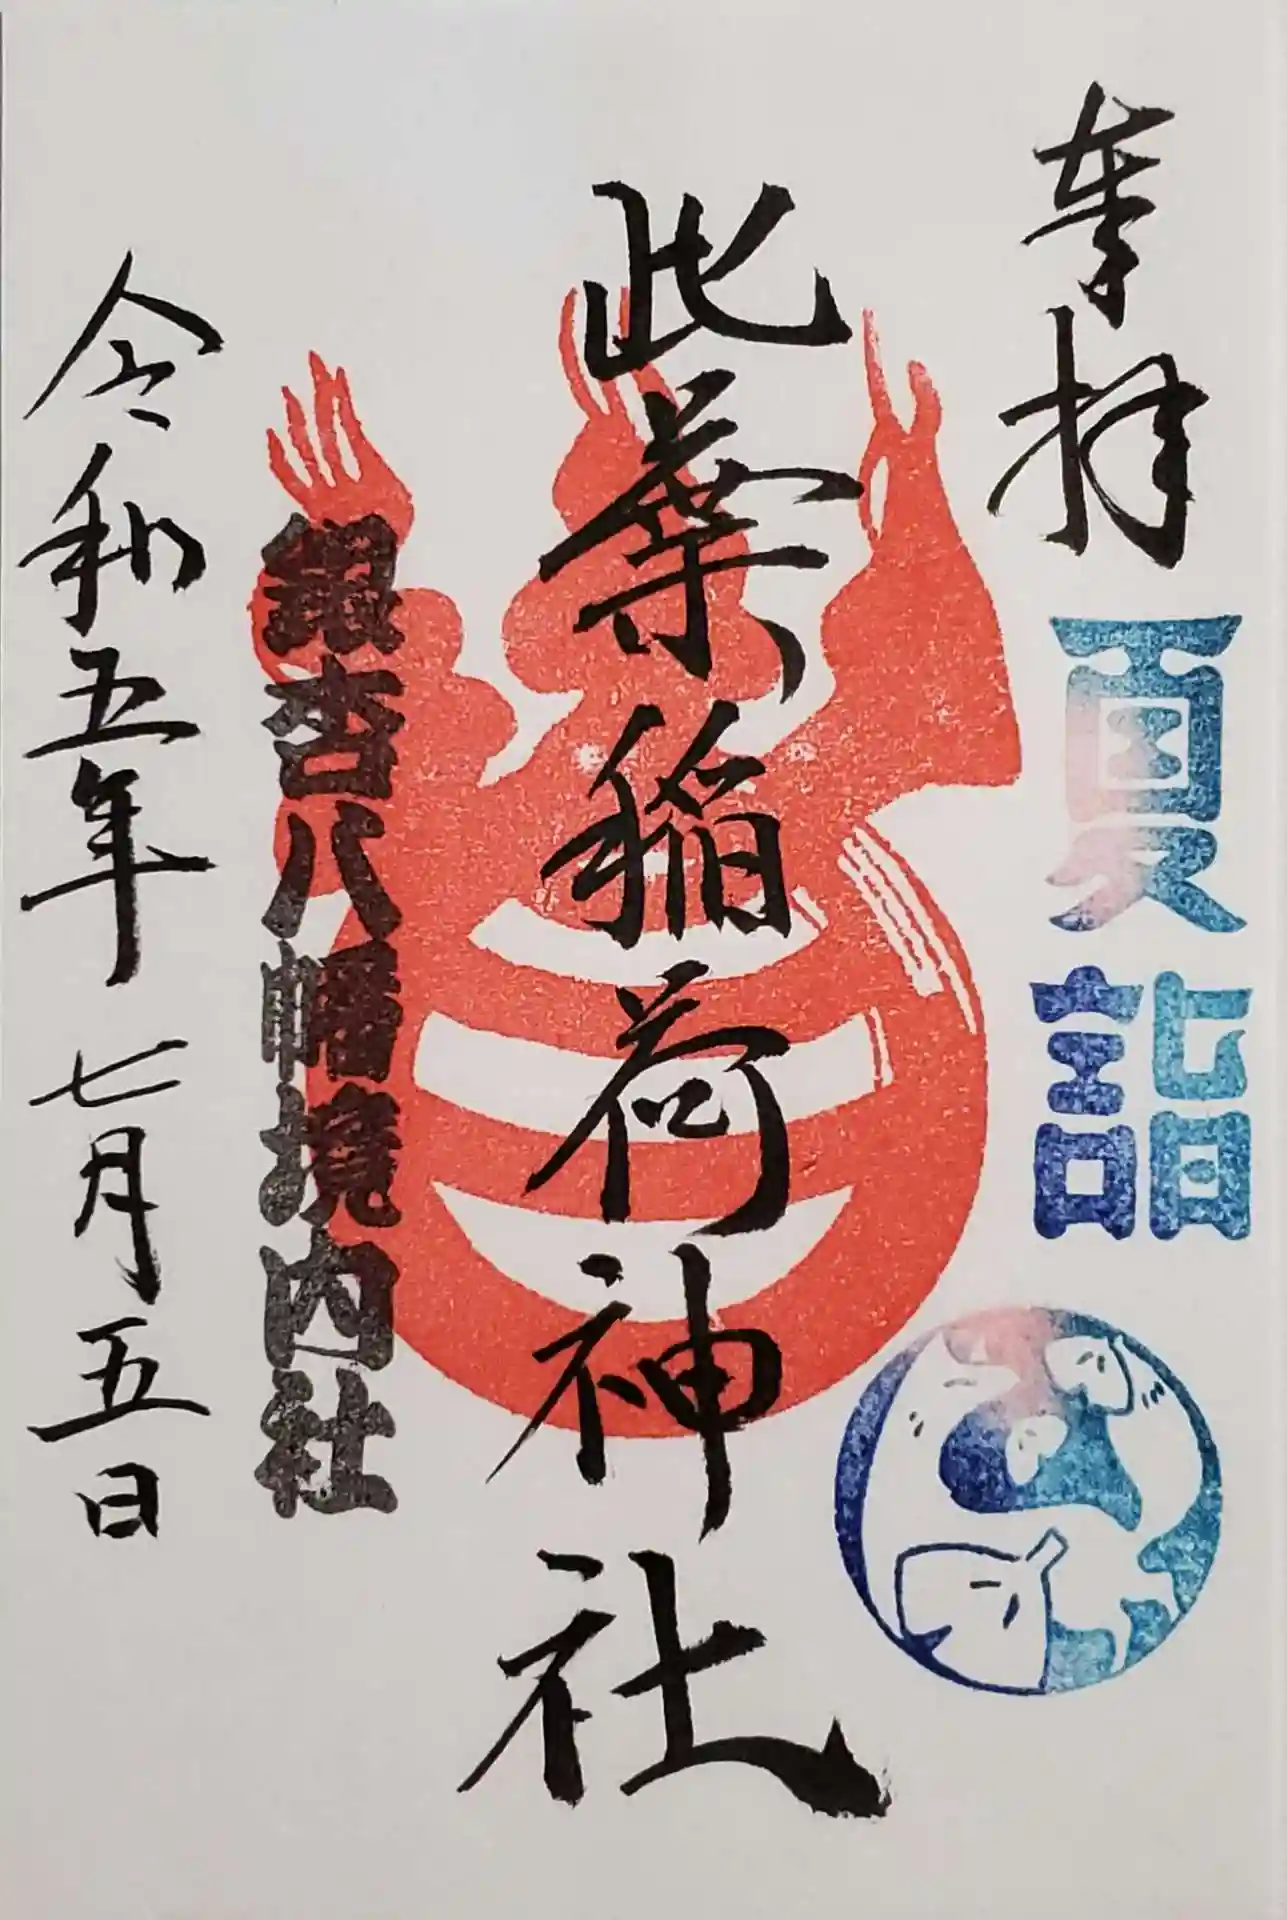 奉拝
夏詣
此葉稲荷神社
銀杏八幡境内社
令和五年七月五日